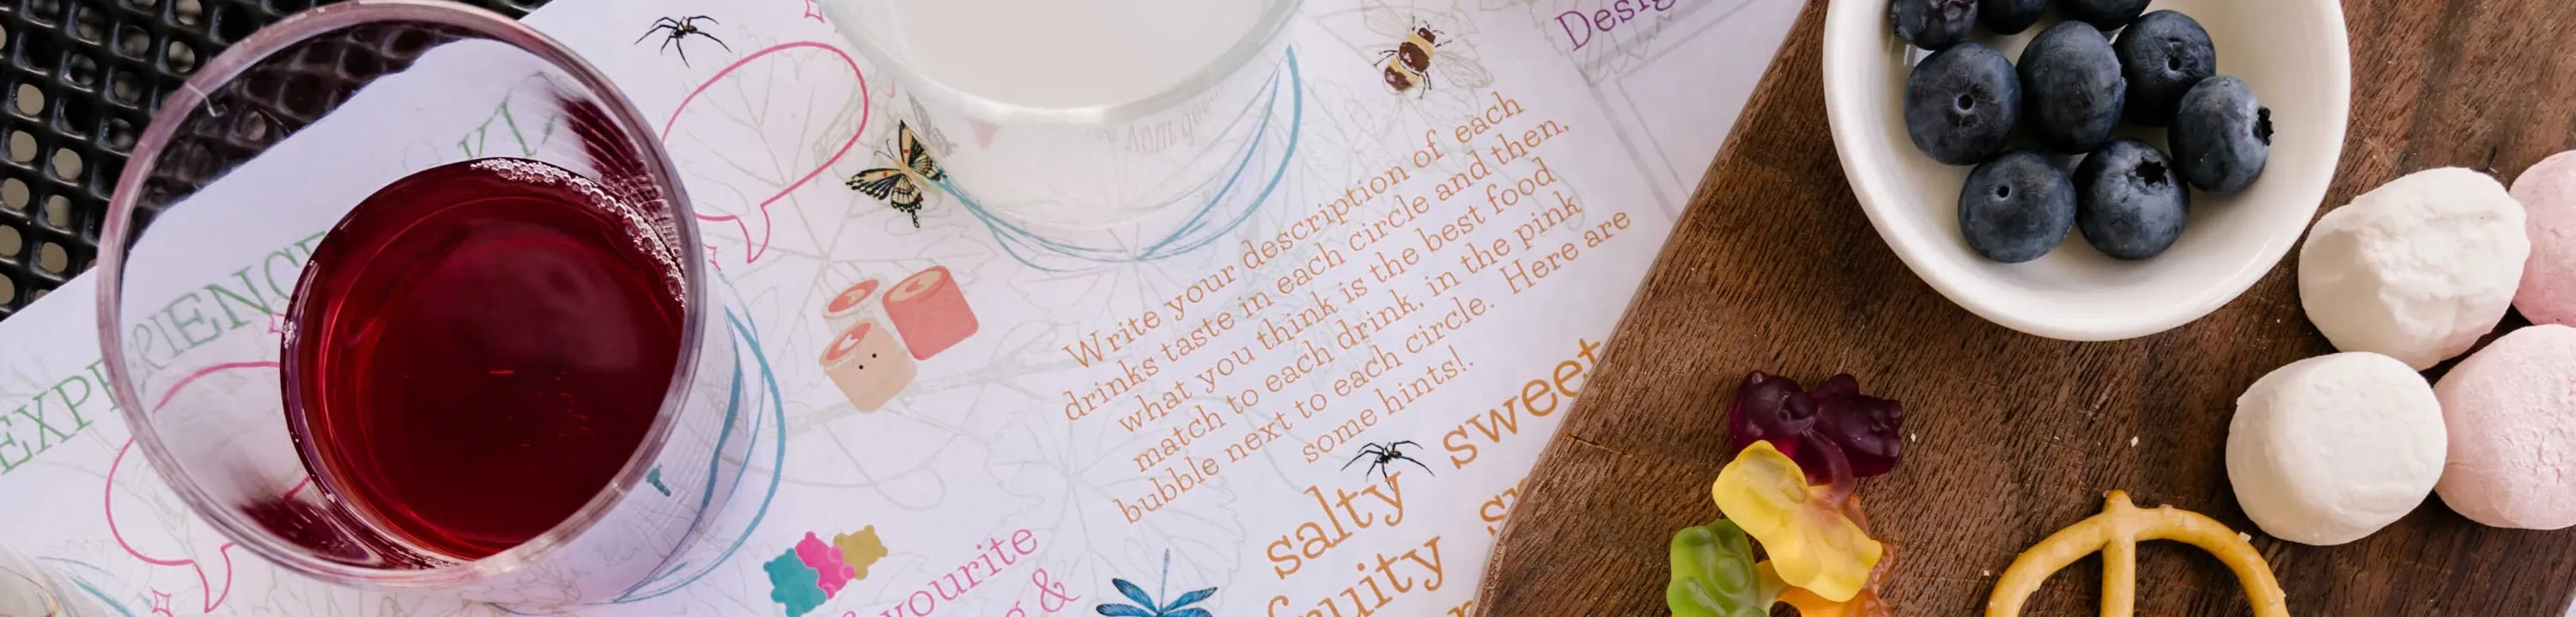 Write your description of each
drinks taste in each circle and then,
what you think is the best food
match to each drink, in the pink
bubble next to each circle. Here are
some hints!.
sweet
salty
fruity
&